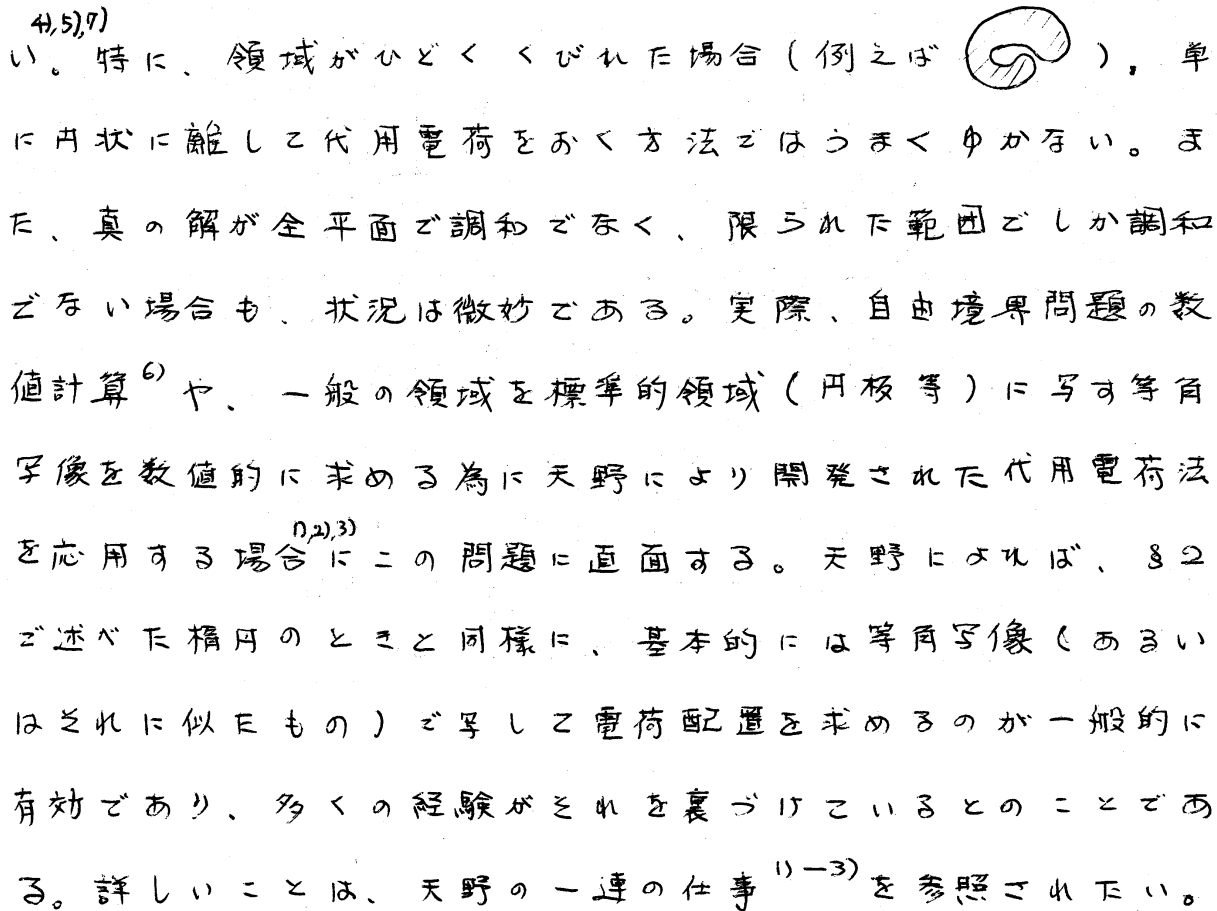 4),5),7)
い。特に、領域がひどくくびれた場合(例えば )、単
に円状に離して代用電荷をおく方法ではうまくゆかない。ま
た、真の解が全平面で調和でなく、限られた範囲でしか調和
でない場合も、状況は微妙である。実際、自由境界問題の数
値計算6)や、一般の領域を標準的領域(円板等)に写す等角
写像を数値的に求める為に天野により開発された代用電荷法
1),2),3)
を応用する場合にこの問題に直面する。天野によれば、§2
で述べた楕円のときと同様に、基本的には等角写像(あるい
はそれに似たもの)で写して電荷配置を求めるのが一般的に
有効であり、多くの経験がそれを裏づけているとのことであ
る。詳しいことは、天野の一連の仕事1)-3)を参照されたい。